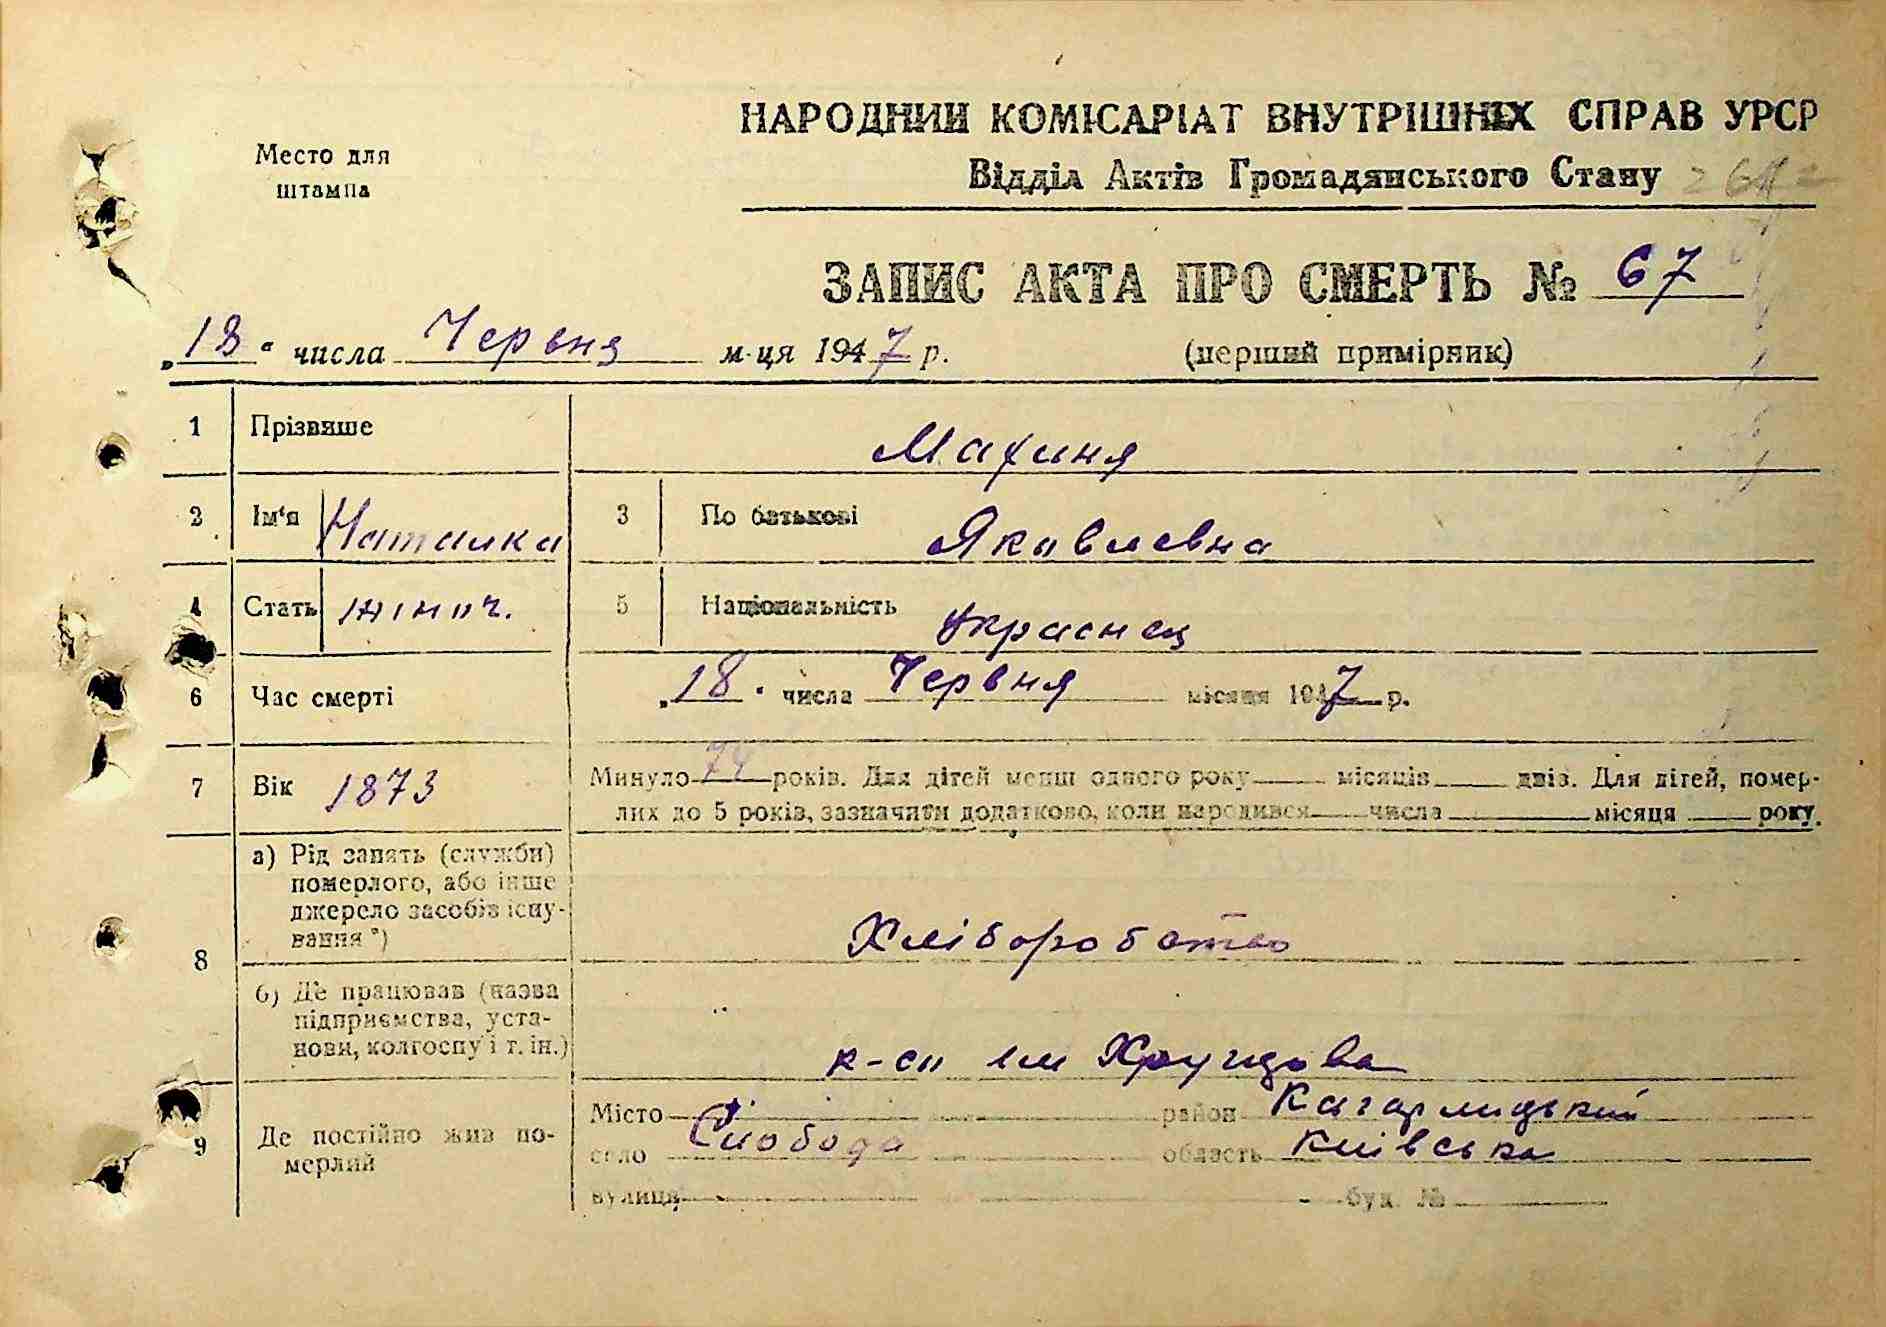 Место для
штампа
НАРОДНИЙ КОМІСАРІАТ ВНУТРІШНІХ СПРАВ УРСР
Відділ Актів Громадянського Стану
ЗАПИС АКТА ПРО СМЕРТЬ № 67
„18“ числа Червня м-ця 1947 р. (перший примірник)
1 Прізвише Махиня
2 Ім'я Наталка 3 По батькові Яковлевна
4 Стать жіноч. 5 Національність
6 Час смерті „18“ числа Червня місяця 1947 р.
7 Вік 1873 Минуло 74 років. Для дітей менш одного року місяців днів. Для дітей, помер-
лих до 5 років, зазначити додатково, коли народився числа місяця року.
8 а) Рід занять (служби)
померлого, або інше
джерело засобів існу-
вання*) Хліборобство
б) Де працював (назва
підприємства, уста-
нови, колгоспу і т. ін.) к-сп ім Хрущова
9 Де постійно жив по-
мерлий
Місто район Кагарлицький
село Слобода область Київська
вулиця буд. №